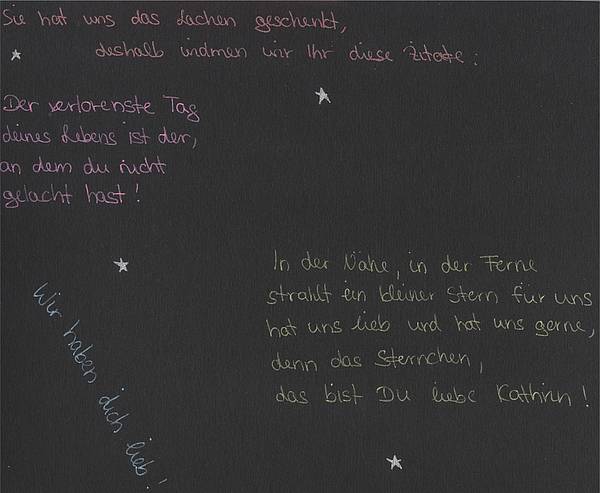 Sie hat uns das Lachen geschenkt,
deshalb widmen wir Ihr diese Zitate:
Der verlorenste Tag
deines Lebens ist der,
an dem du nicht
gelacht hast!
In der Nähe, in der Ferne
strahlt ein kleiner Stern für uns
hat uns lieb und hat uns gerne,
denn das Sternchen,
das bist Du liebe Kathrin!
Wir haben dich lieb!